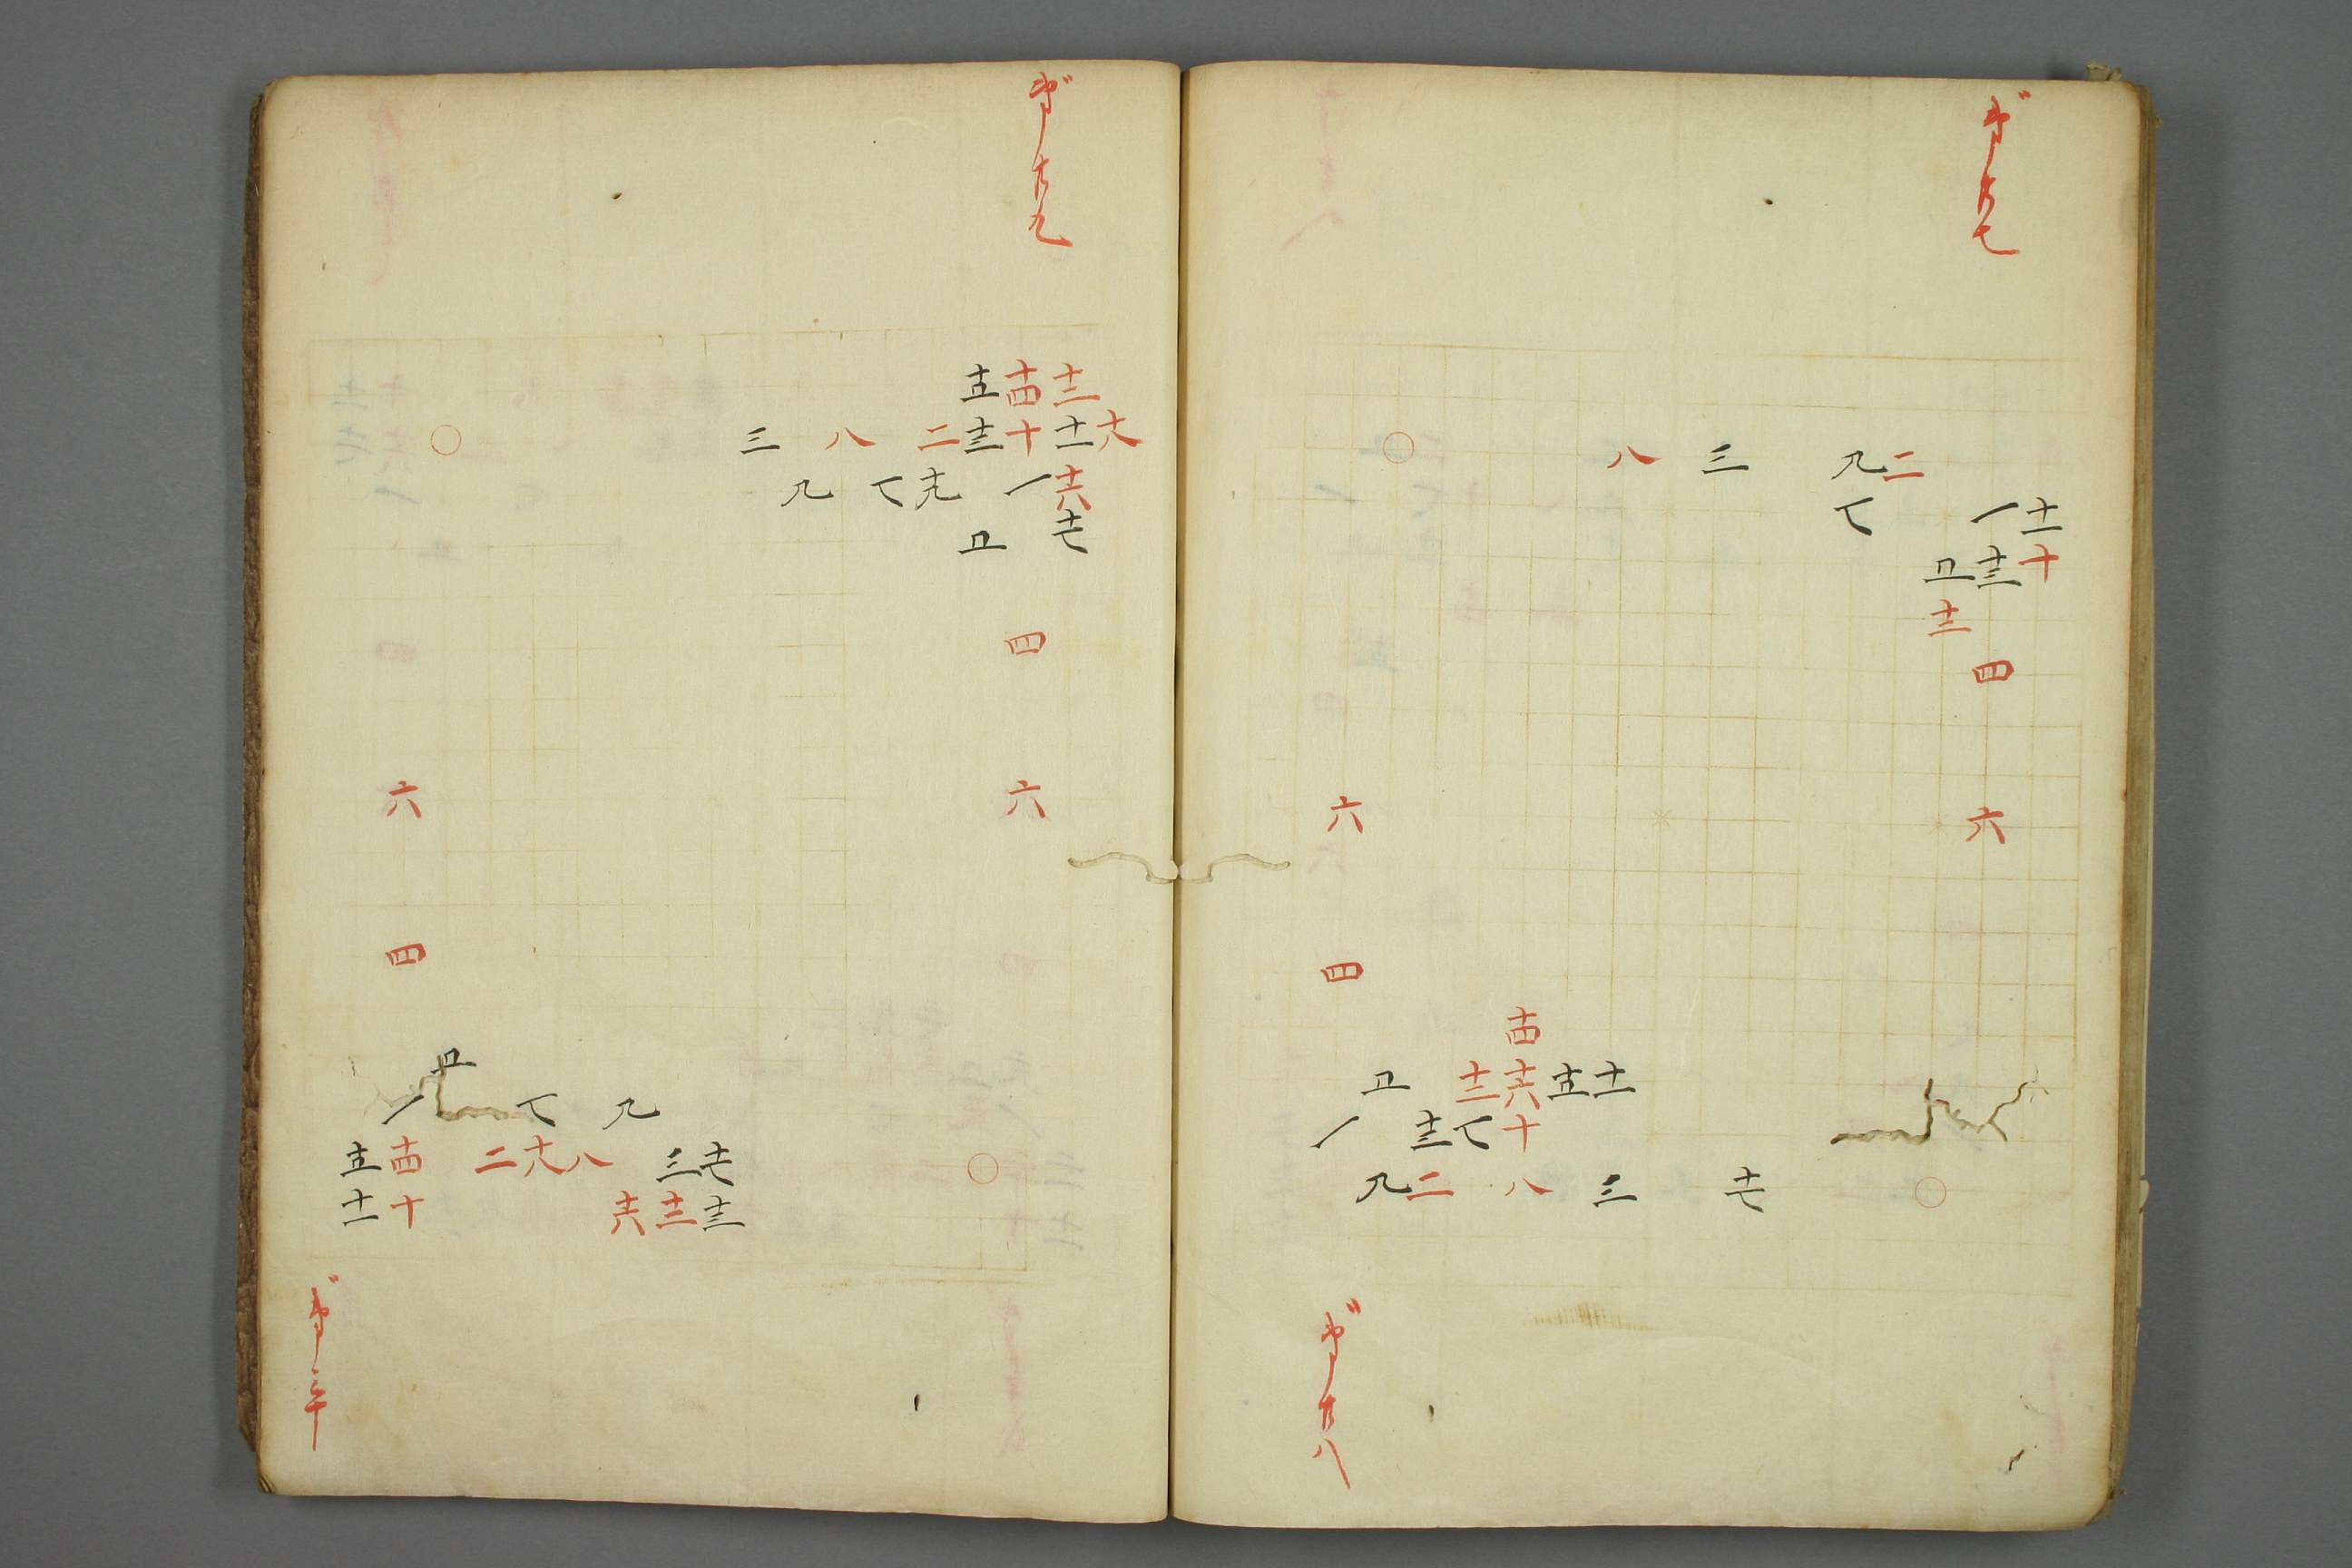 第廿七
○ 八 三 九 二
七 一 十一
五 十三 十
十二
四
六 六
四
十四
五 十二 十六 十五 十一
一 十三 七 十
九 二 八 三 十七 ○
第廿八
第廿九
十五 十四 十二
○ 三 八 二 十三 十 十一 十八
九 七 十九 一 十六
五 十七
四
六 六
四
五
一 七 九
十五 十四 二 十八 八 三 十七 ○
十一 十 十六 十二 十三
第三十